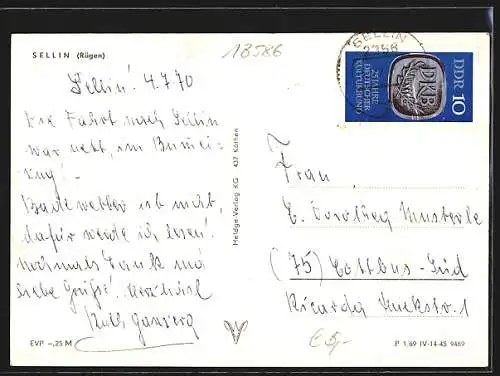 SELLIN (Rügen)
13586
Sellin! 4.7.70
Die Fahrt nach Sellin
war nett, im Bummel-
zug!
Badewetter ist nicht,
dafür werde ich lesen!
Nochmals Dank und
liebe Grüße! Herzlichst
Ruth
EVP -,25 M
Meldge-Verlag KG 437 Köthen
SELLIN
2356
25 JAHRE
DEUTSCHER
KULTURBUND
DKB
DDR 10
Frau
E. Dorothea Musterle
(75) Cottbus-Süd
Ricarda Huchstr. 1
€ 5,-
P 1/69 IV-14-45 9469